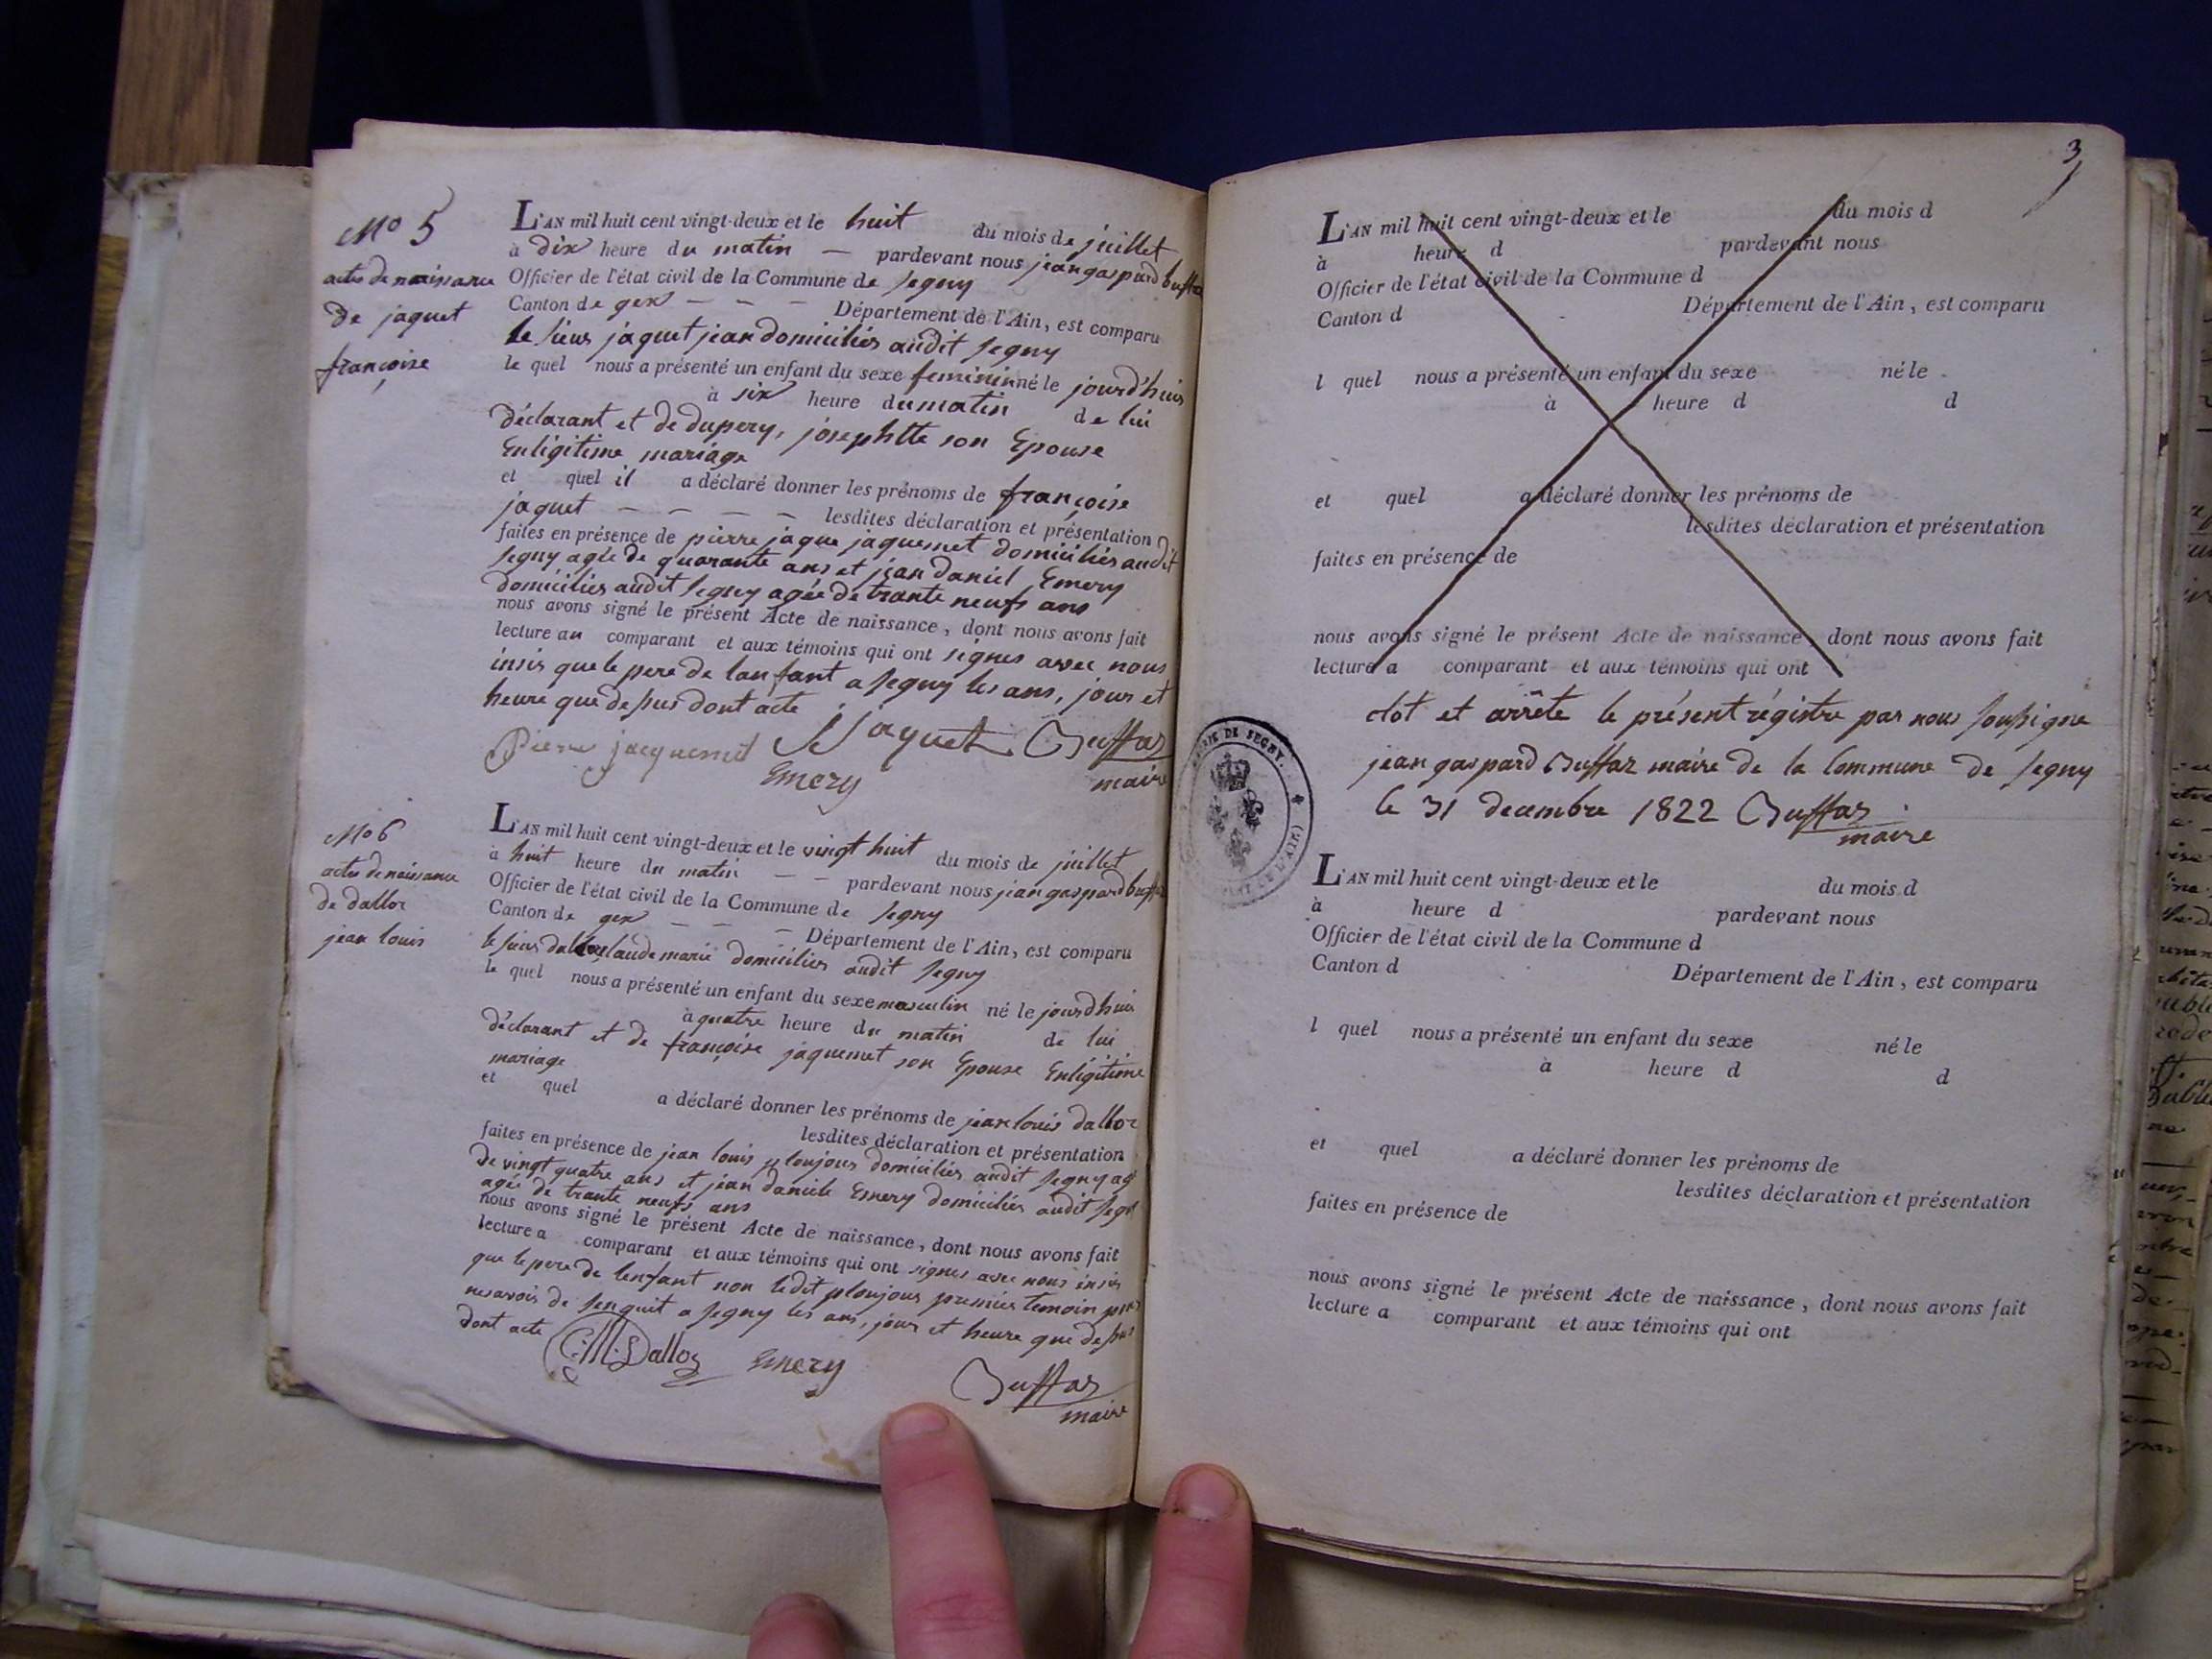 No 5
actes de naissance
de jaquet
françoise
L'AN mil huit cent vingt-deux et le huit du mois de juillet
à dix heure du matin — pardevant nous jean gaspard buffaz
Officier de l'état civil de la Commune de segny
Canton de gex — — — Département de l'Ain, est comparu
le sieur jaquet jean domiciliés audit segny
le quel nous a présenté un enfant du sexe feminin né le jourd'huis
à six heure du matin de lui
déclarant et de dupery, josephtte son Epouse
Enligitime mariage
et quel il a déclaré donner les prénoms de françoise
jaquet — — — — lesdites déclaration et présentation
faites en présence de pierre jaque jaquemet domiciliés audit
segny agée de quarante ans et jean daniel Emery
domiciliés audit segny agée de trante neufs ans
nous avons signé le présent Acte de naissance, dont nous avons fait
lecture au comparant et aux témoins qui ont signes avec nous
insis que le pere de lanfant a segny les ans, jours et
heure que de sus dont acte
Pierre jacquemet Jaquet Buffaz
Emery maire
No 6
actes de naissance
de dalloz
jean louis
L'AN mil huit cent vingt-deux et le vingt huit du mois de juillet
à huit heure du matin — — pardevant nous jean gaspard buffaz
Officier de l'état civil de la Commune de segny
Canton de gex — — — Département de l'Ain, est comparu
le sieur dalloz claude marie domiciliés audit segny
le quel nous a présenté un enfant du sexe masculin né le jourdhuis
à quatre heure du matin de lui
déclarant et de françoise jaquemet son Epouse Enligitime
mariage
et quel a déclaré donner les prénoms de jean louis dalloz
lesdites déclaration et présentation
faites en présence de jean louis ploujoux domiciliés audit segny ag
de vingt quatre ans et jean daniele Emery domiciliés audit seg
agée de trante neufs ans
nous avons signé le présent Acte de naissance, dont nous avons fait
lecture a comparant et aux témoins qui ont signes avec nous insis
que le pere de lenfant non ledit ploujoux premier temoin pour
ne savoir de senquit a segny les ans, jours et heure que de sus
dont acte
C. M. Dalloz Emery Buffaz
maire
3
L'AN mil huit cent vingt-deux et le du mois d
à heure d pardevant nous
Officier de l'état civil de la Commune d
Canton d Département de l'Ain, est comparu
l quel nous a présenté un enfant du sexe né le
à heure d d
et quel a déclaré donner les prénoms de
lesdites déclaration et présentation
faites en présence de
nous avons signé le présent Acte de naissance, dont nous avons fait
lecture a comparant et aux témoins qui ont
clot et arrête le présent régistre par nous soussigne
jean gaspard Buffaz maire de la Commune de segny
le 31 decembre 1822 Buffaz
maire
MAIRIE DE SEGNY.
L'AN mil huit cent vingt-deux et le du mois d
à heure d pardevant nous
Officier de l'état civil de la Commune d
Canton d Département de l'Ain, est comparu
l quel nous a présenté un enfant du sexe né le
à heure d d
et quel a déclaré donner les prénoms de
lesdites déclaration et présentation
faites en présence de
nous avons signé le présent Acte de naissance, dont nous avons fait
lecture a comparant et aux témoins qui ont